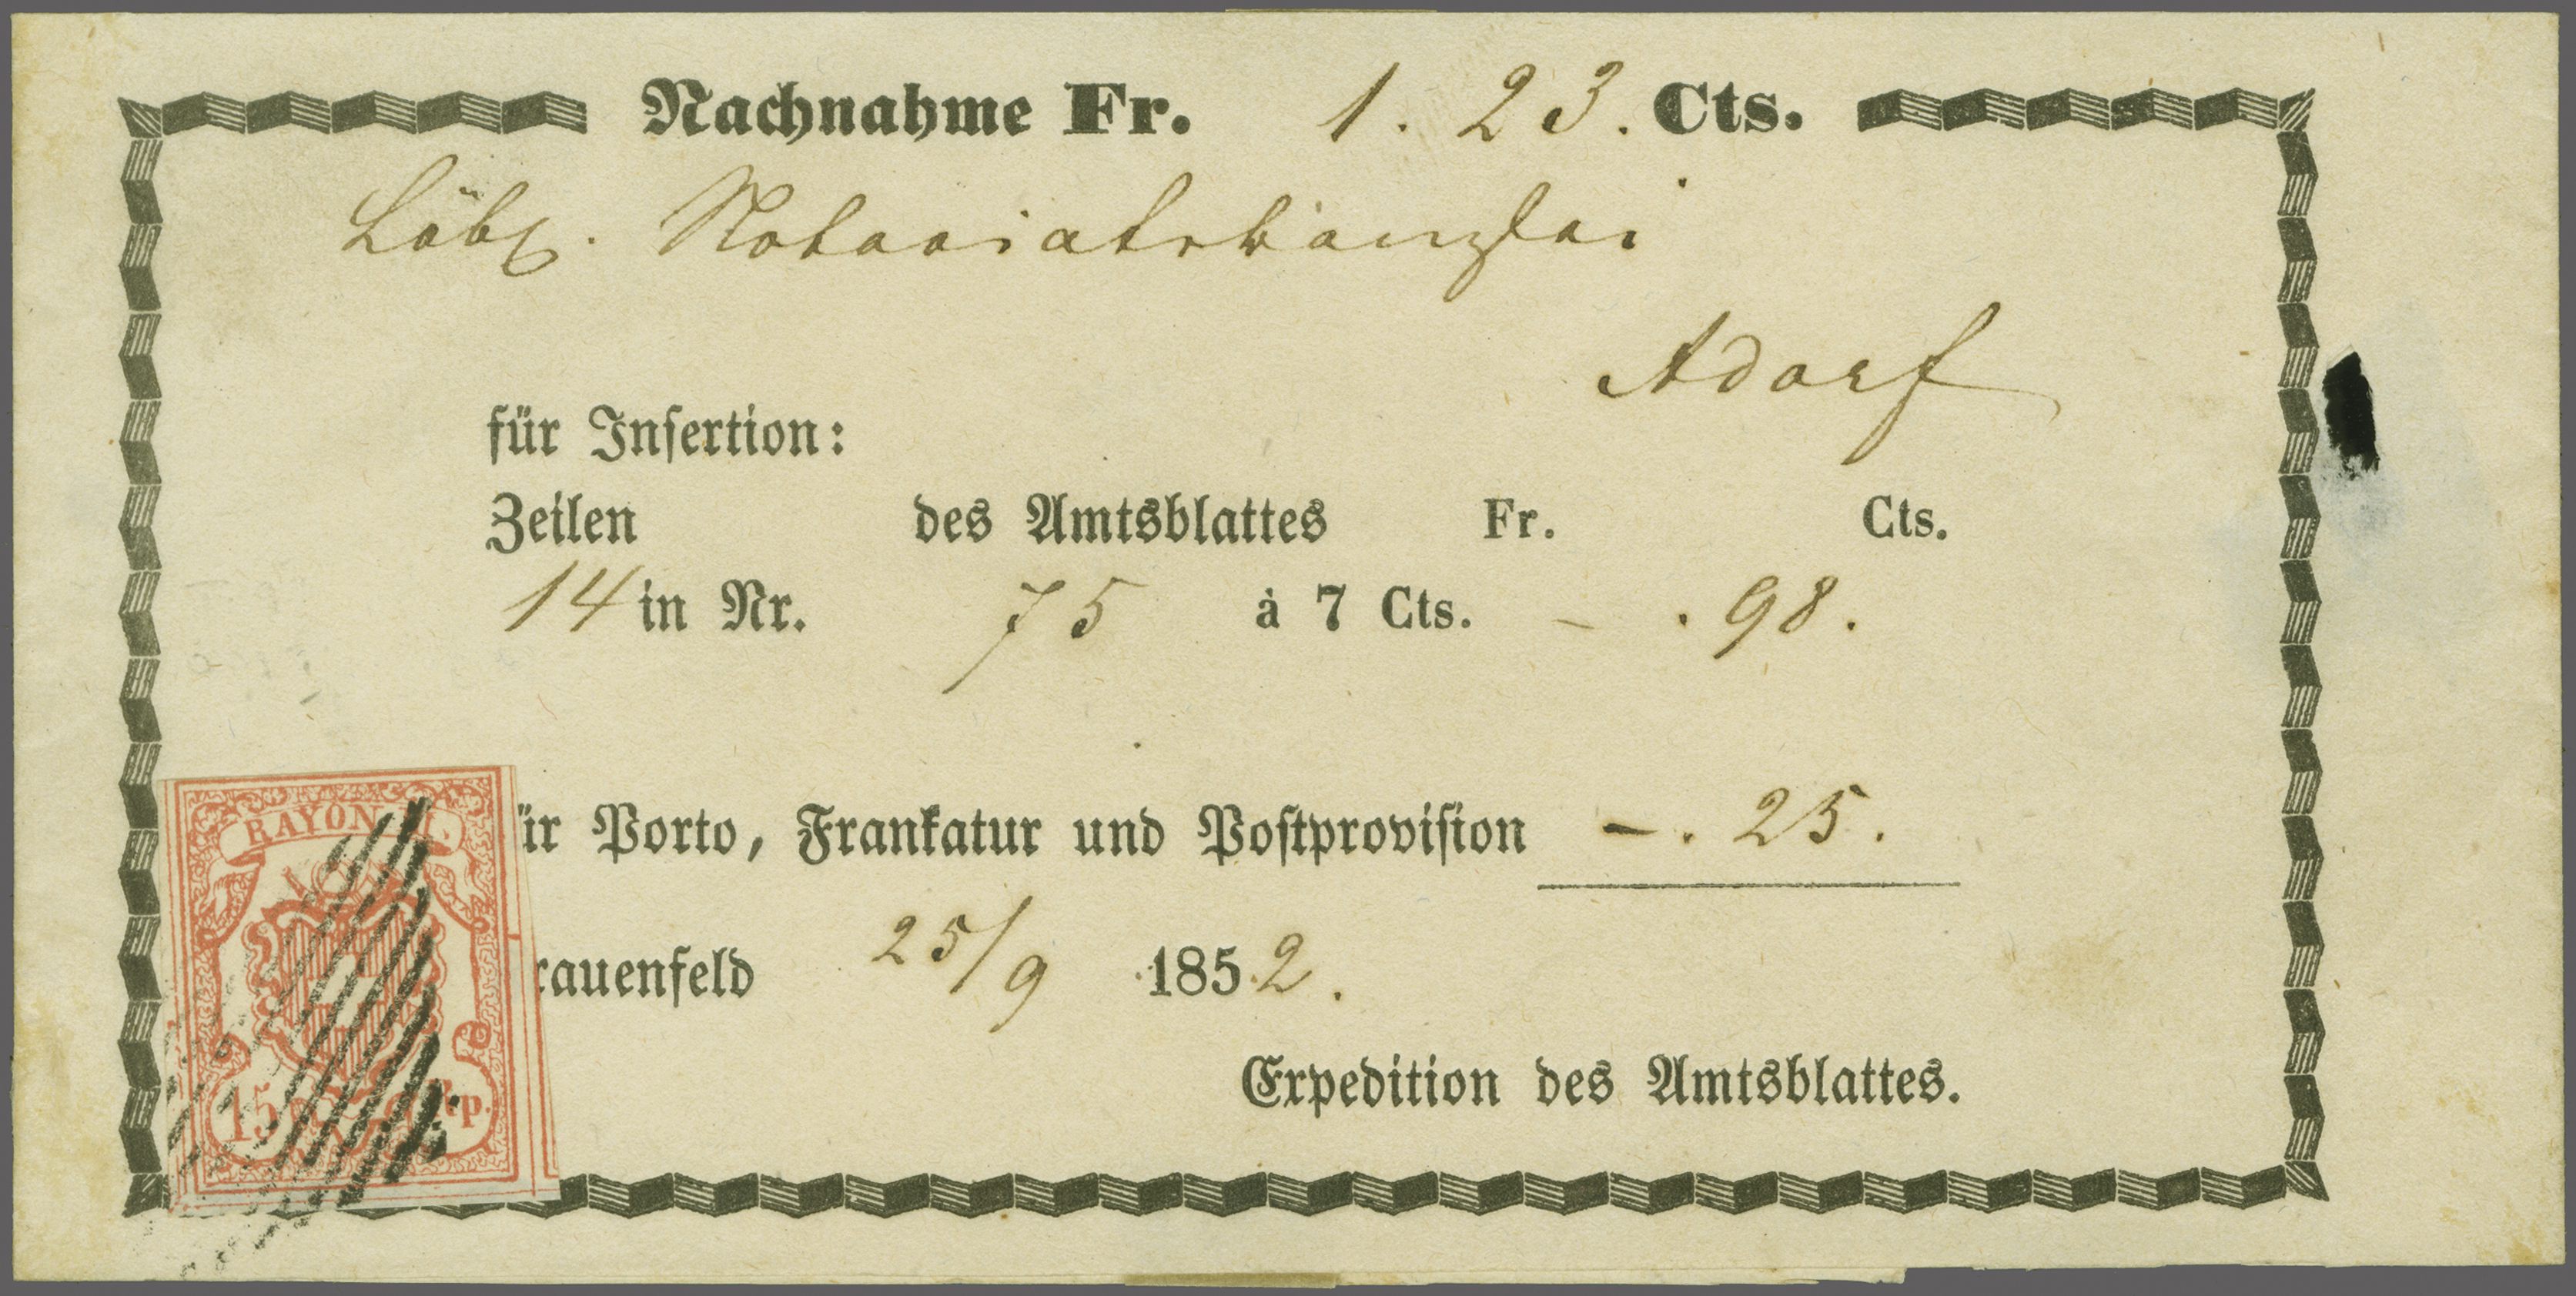 Nachnahme Fr. 1. 23. Cts.
Löbl. Notariatskanzlei
Adorf
für Inſertion:
Zeilen des Amtsblattes Fr. Cts.
14 in Nr. 75 à 7 Cts. – . 98.
ür Porto, Frankatur und Poſtproviſion –. 25.
rauenfeld 25/9 1852.
Expedition des Amtsblattes.
RAYON
15 Rp.